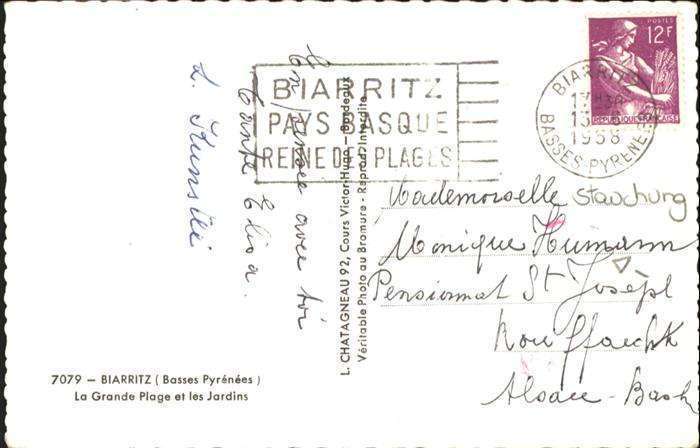 POSTES
12F
RÉPUBLIQUE FRANÇAISE
BIARRITZ
17H30
13
1958
BASSES-PYRÉNÉES
BIARRITZ
PAYS BASQUE
REINE DES PLAGES
En pensée avec toi
Tante Elisa.
L. CHATAGNEAU 92, Cours Victor-Hugo - Bordeaux
Véritable Photo au Bromure - Reprod. Interdite
Mademoiselle Stauchung
Monique Humann
Pensionnat St Joseph
Rouffach
Alsace-Bas
7079 – BIARRITZ ( Basses Pyrénées )
La Grande Plage et les Jardins